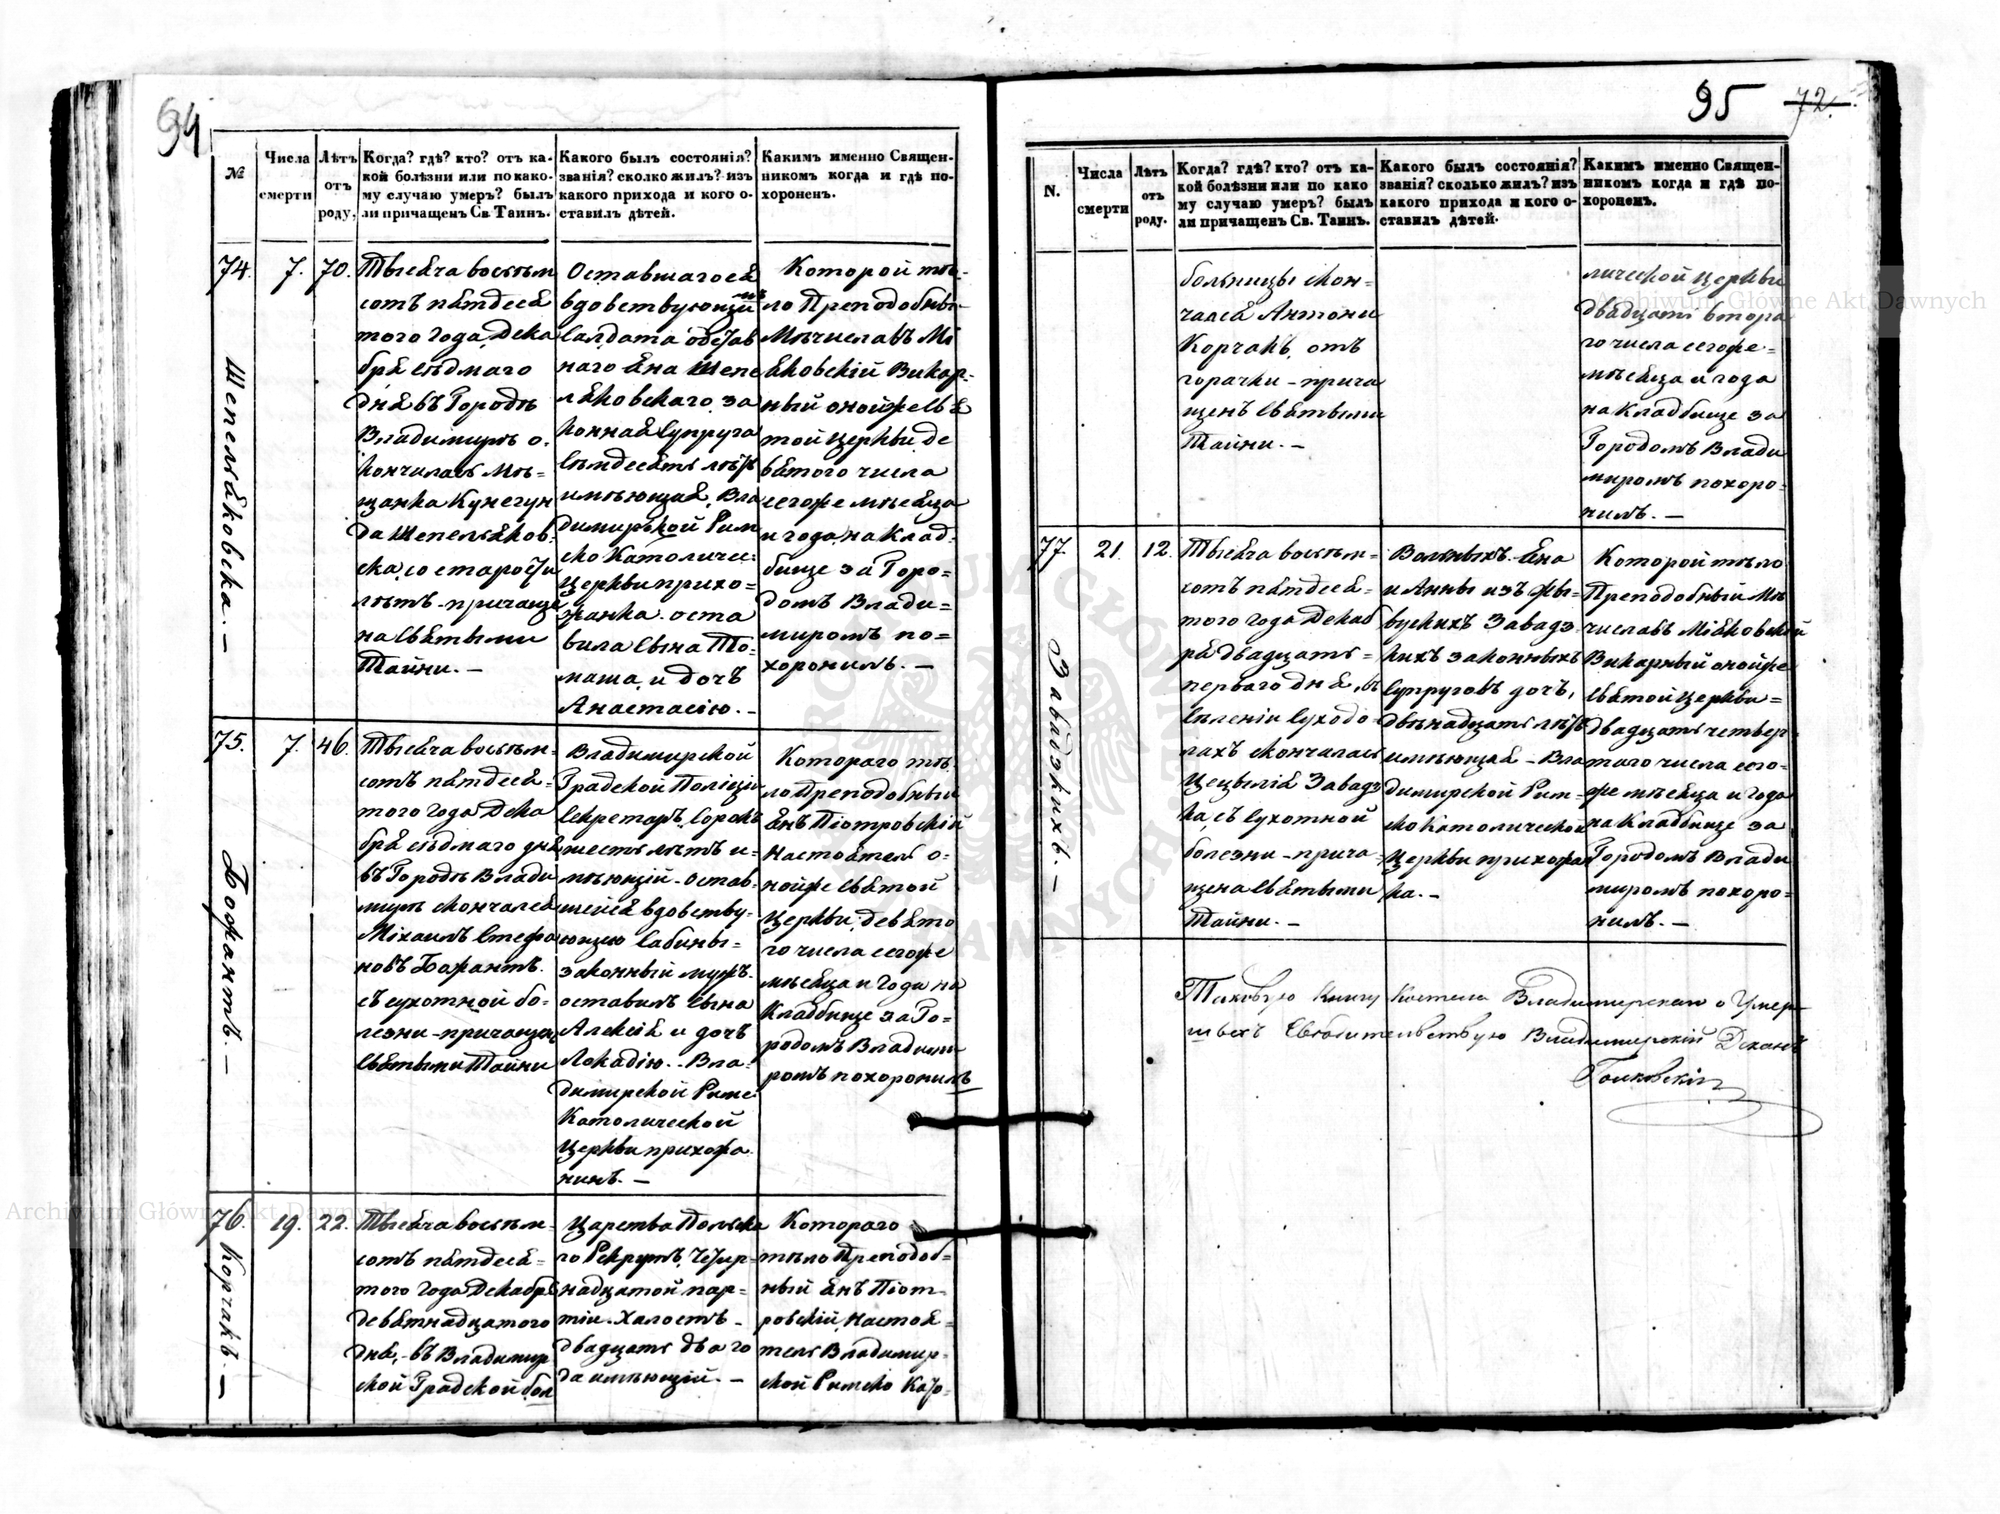 94
№
Числа
смерти
Лѣтъ
отъ
роду,
Когда? гдѣ? кто? отъ ка-
кой болѣзни или по како-
му случаю умеръ? былъ
ли причащенъ Св. Таинъ.
Какого былъ состоянія?
званія? сколко жилъ? изъ
какого прихода и кого о-
ставилъ дѣтей.
Каким именно Священ-
никомъ когда и гдѣ по-
хороненъ.
74.
Шепеляковска. —
7.
70.
Тысяча восьем
сотъ пятдеся
того года Дека
бря сѣдмаго
дня въ Городѣ
Владимирѣ о.
кончилась Мѣ=
щанка Кунегун
да Шепеляков.
ска, со старости
лѣтъ - причаще
на Святыми
Тайни. —
Оставшагося
вдовствующимъ
Салдата одстав
наго Яна Шепе
ляковскаго, за
конная Супруга
сѣмдесятъ лѣтъ
имѣющая, Вла
димирской Рим
ско Католичи:
Церкви прихо-
жанка. оста
вила Сына То-
маша, и дочъ
Анастасію. —
Которой тѣ-
ло Преподобны-
Мѣчиславъ Мі
яковскій Викар-
ный онойже Свя
той Церкви де
вятого числа
сегоже мѣсяца
и года, на Клад-
бище за Горо=
домъ Влади=
миромъ по=
хоронилъ. —
75.
Божантъ. —
7.
46.
Тысяча восьем=
сотъ пятдеся=
того года Дека
бря сѣдмаго дня
въ Городѣ Влади
мирѣ скончался
Міхаилъ Стефа
новъ Божантъ.
съ сухотной бо-
лезни - причащен
Святыми Тайни
Владимирской
Градской Поліціи
Секретаръ, Сорокъ
шесть лѣтъ и-
мѣющій - остав-
шейся вдовству-
ющею Сабины=
законный мужъ.
оставилъ Сына
Алексія и дочъ
Локадію. - Вла=
димирской Римс
Католической
Церкви прихожа
нинъ. —
Котораго тѣ.
ло Преподобный
Янъ Піотровскій
Настоятель о-
нойже Святой
Церкви, девято
го числа сегоже
мѣсяца и года на
Кладбище за Го=
родомъ Владими
ромъ похоронилъ
76.
Корчакъ. —
19.
22.
Тысяча восьем=
сотъ пятдеся=
того года Декабря
девятнадцатого
дня, - въ Владимир
ской Градской бол
Царства Польска
го Рекрутъ, четыр-
надцатой пар=
тіи - Халостъ -
двадцать два го
да имѣющій. —
Котораго
тѣло Преподоб=
ный Янъ Піот=
ровскій, Настоя=
тель Владимир-
ской Римско Като-
95
72.
N.
Числа
смерти
Лѣтъ
отъ
роду.
Когда? гдѣ? кто? отъ ка-
кой болѣзни или по како
му случаю умеръ? былъ
ли причащенъ Св. Таинъ.
Какого былъ состоянія?
званія? сколько жилъ? изъ
какого прихода и кого о-
ставилъ дѣтей.
Какимъ именно Священ-
никомъ когда и гдѣ по-
хороненъ.
больницы скон=
чался Антони
Корчакъ, отъ
горачки - прича
щенъ Святыми
Тайни. —
лической Церкви
двадцать втора
го числа сегоже=
мѣсяца и года
на Кладбище за
Городомъ Влади
миромъ похоро=
нилъ. —
77.
Завадзкихъ. —
21.
12.
Тысяча восьем=
сотъ пятдеся=
того года Декаб
ря двадцать=
перваго дня, въ
Сѣленіи Суходо-
лахъ скончалась
Цецылія Завадз
ка, съ Сухотной
болезни - прича-
щена Святыми
Тайни. —
Вольныхъ - Яна
и Анны изъ Жы-
вускихъ Завадз
кихъ законныхъ
Супруговъ дочъ,
двѣнадцать лѣтъ
имѣющая - Вла
димирской Рим=
ско Католической
Церкви прихожан
ка. —
Которой тѣло
Преподобный Мѣ
числавъ Міяковскій
Викарный онойже
Святой Церкви=
двадцать четвер-
таго числа сего-
же мѣсяца и года
на Кладбище за
Городомъ Влади
миромъ похоро=
нилъ. —
Таковую Книгу Костела Владимирскаго о Умер
шыхъ Свѣдительствую Владимирскій Деканъ
Archiwum Główne Akt Dawnych
Archiwum Główne Akt Dawnych
ARCHIWUM GŁÓWNE AKT DAWNYCH